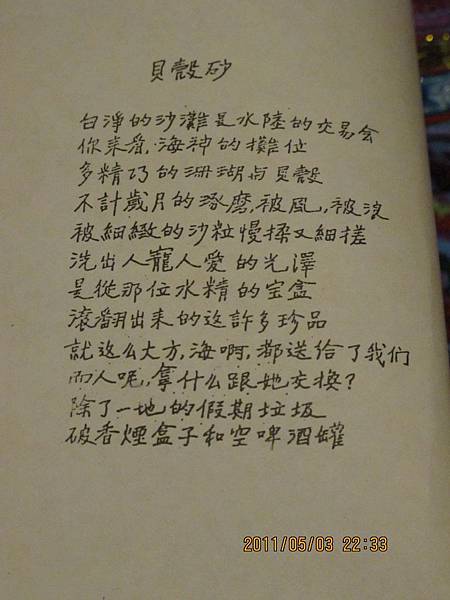 貝殼砂
白淨的沙灘是水陸的交易会
你来看,海神的攤位
多精巧的珊瑚与貝殼
不計歲月的琢磨,被風,被浪
被細緻的沙粒慢揉又細搓
洗出人寵人愛的光澤
是從那位水精的宝盒
滾翻出来的这許多珍品
就这么大方,海啊,都送给了我们
而人呢,拿什么跟她交換?
除了一地的假期垃圾
破香煙盒子和空啤酒罐
2011/05/03 22:33